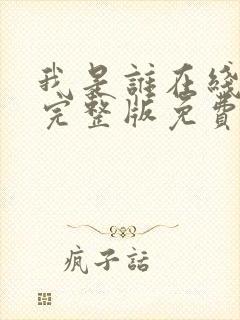 我是誰在綫
完整版免費
瘋子話